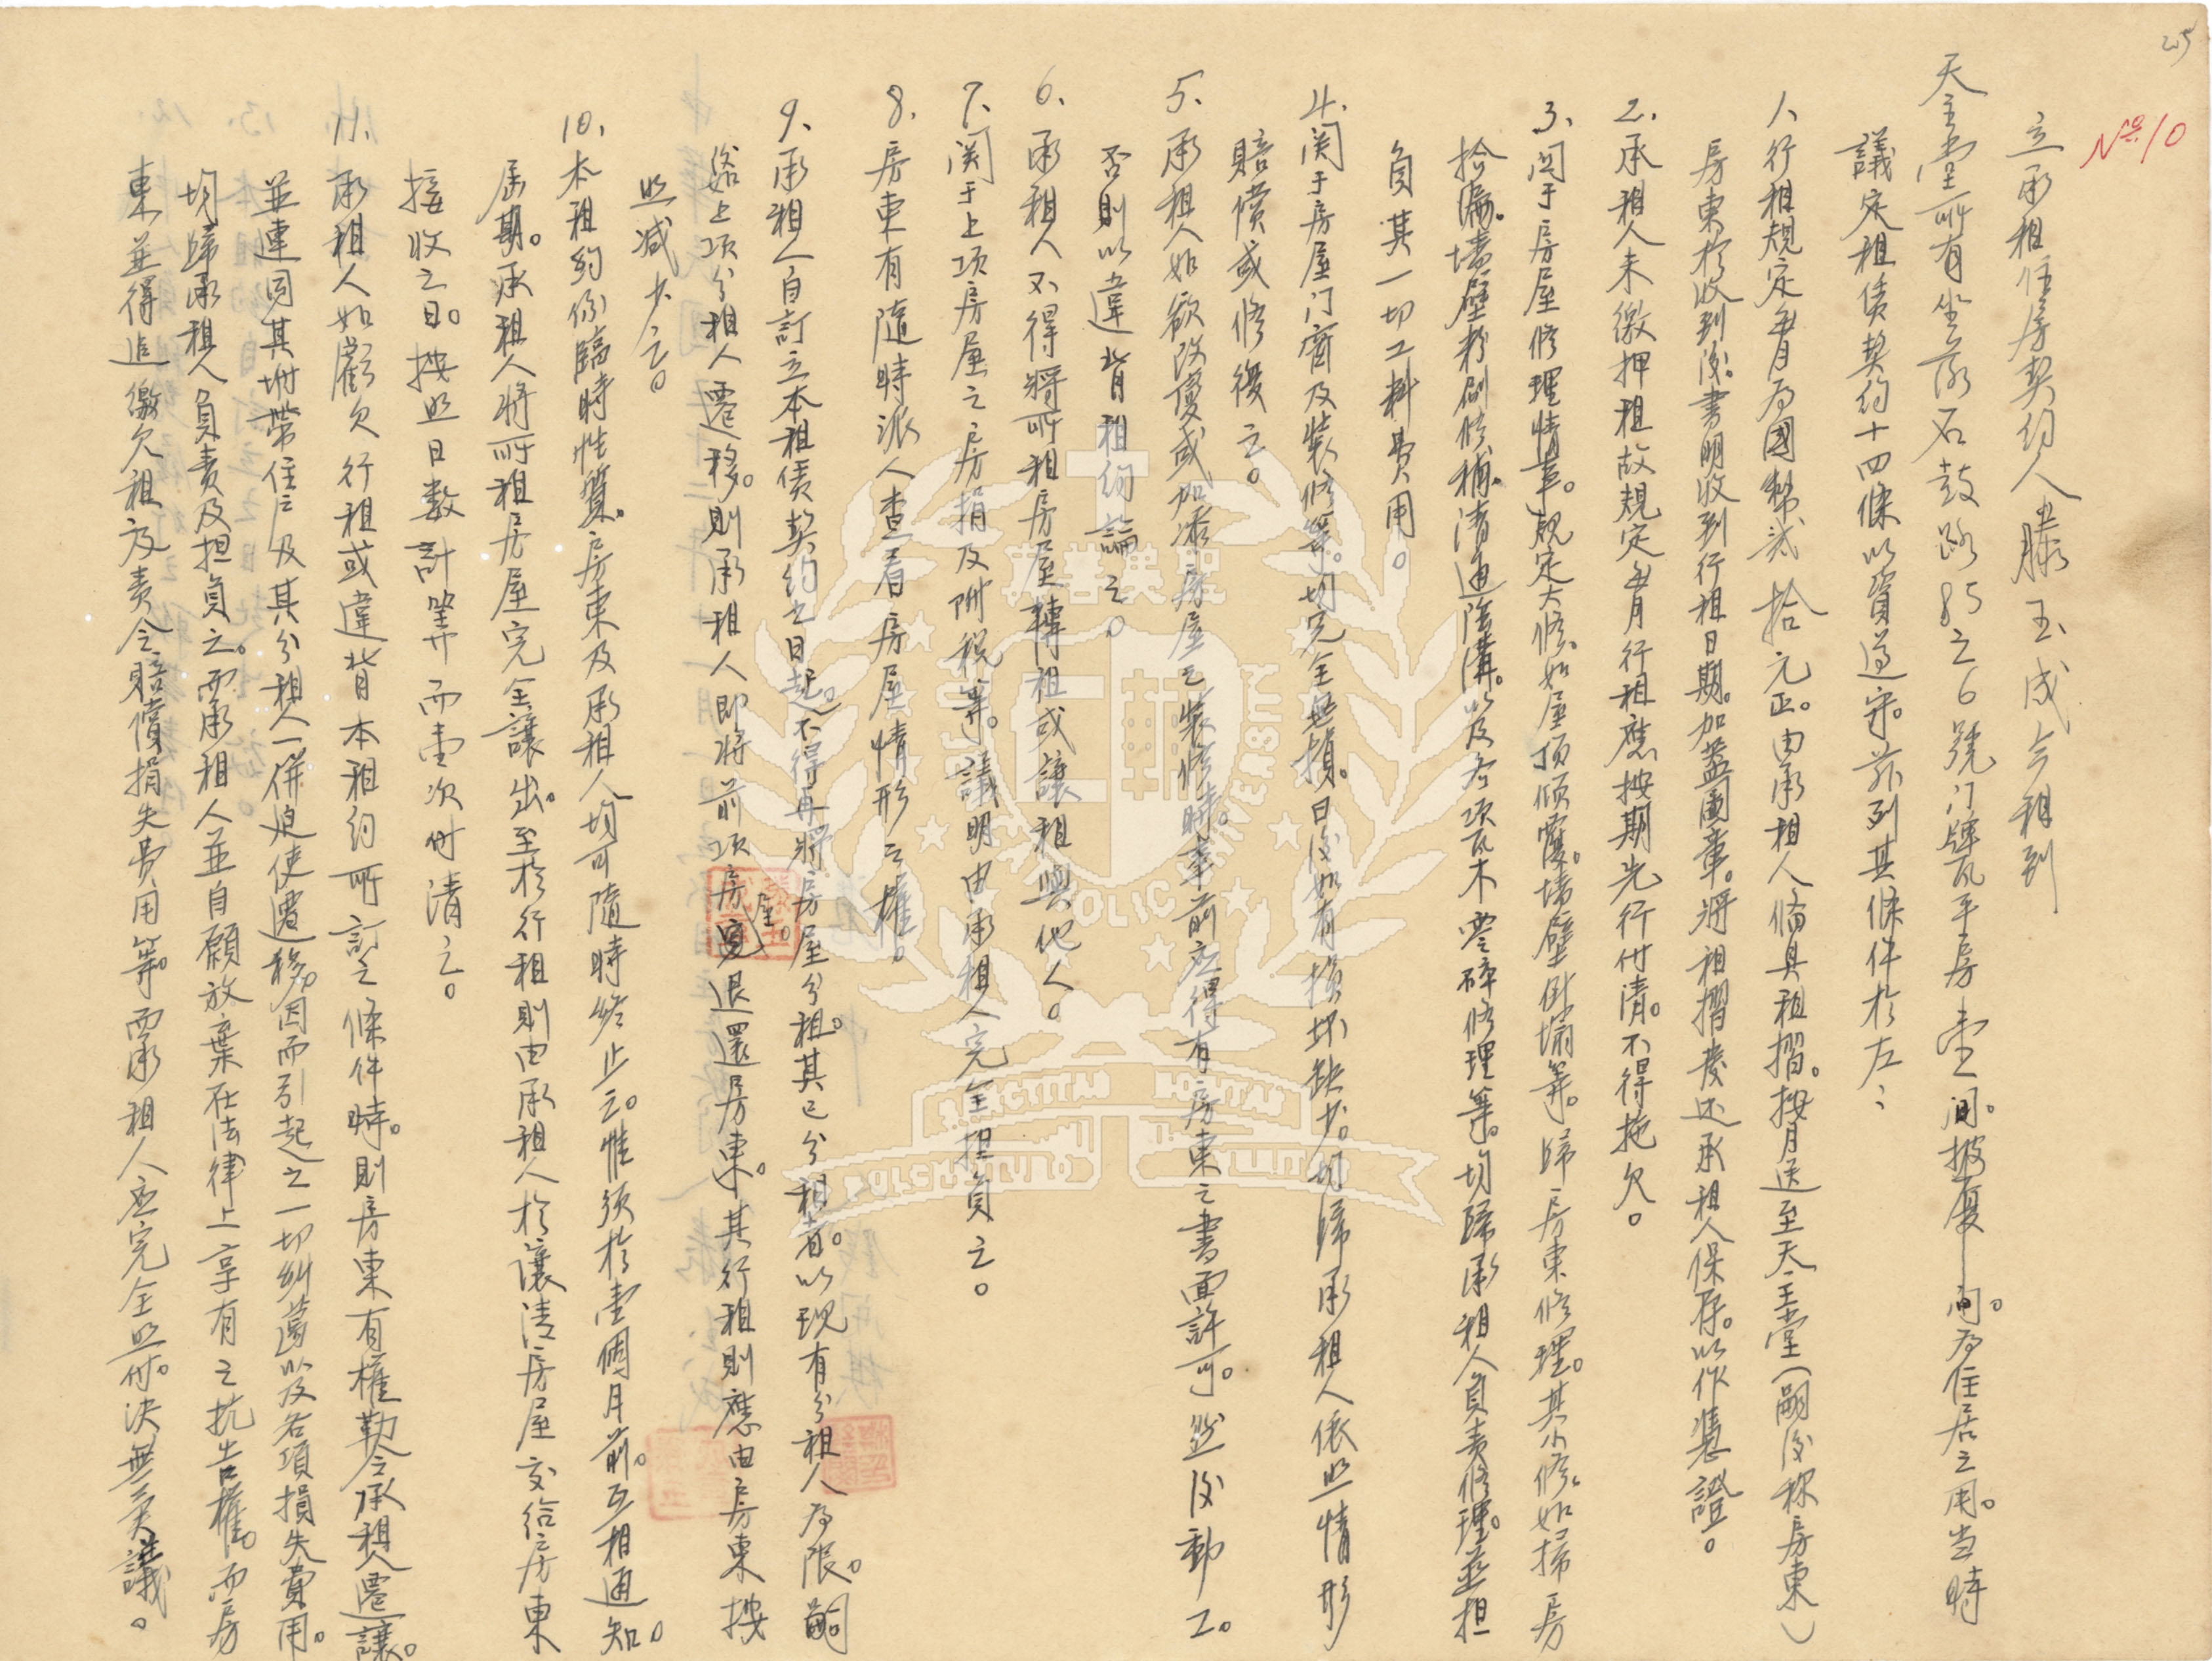 25
No.10
立承租住房契約人滕玉成今租到
天主堂所有坐落石鼓路85之6號门牌瓦平房壹间。披厦一间。为住居之用。当時
議定租賃契約十四條以資遵守。茲列其條件於左：
1、行租規定每月为國幣贰拾元正。由承租人備具租摺。按月送至天主堂（嗣後称房東）
房東於收到後。書明收到行租日期。加蓋圖章。將租摺發还承租人保存。以作憑證。
2、承租人未繳押租故規定每月行租應按期先行付清。不得拖欠。
3、関于房屋修理情事。規定大修。如屋顶倾覆。墙壁倒塌等。歸房東修理。其小修。如掃房
拾漏。墙壁粉刷修補。清通陰溝。以及各項瓦木零碎修理等。均歸承租人負责修理。並担
負其一切工料费用。
4、関于房屋门窗及裝修等。均完全無損。日後如有損坏缺少。均歸承租人依照情形
賠償或修復之。
5、承租人如欲改變或加添房屋之裝修時。事前应得有房東之書面許可。然後動工。
否則以違背租約論之。
6、承租人不得將所租房屋轉租或讓租與他人。
7、関于上項房屋之房捐及附税等。議明由承租人完全担負之。
8、房東有隨時派人查看房屋情形之權。
9、承租人自訂立本租賃契約之日起。不得再將房屋分租。其已分租者。以現有分租人为限。嗣
後如上项分租人遷移。則承租人即將前项房屋。退還房東。其行租則應由房東按
照减少之。
10、本租約係臨時性質。房東及承租人均可隨時終止之。惟須於壹個月前。互相通知。
届期。承租人將所租房屋完全讓出。至於行租則由承租人於讓清房屋交给房東
接收之日。按照日数計算而壹次付清之。
11、承租人如虧欠行租或違背本租約所訂之條件時。則房東有權勒令承租人遷讓。
並連同其坿帶住户及其分租人一併迫使遷移。因而引起之一切糾葛以及各項損失費用。
均歸承租人負责及担負之。而承租人並自願放棄在法律上享有之抗告權。而房
東並得追繳欠租及责令賠償損失费用等。而承租人应完全照付。决無異議。